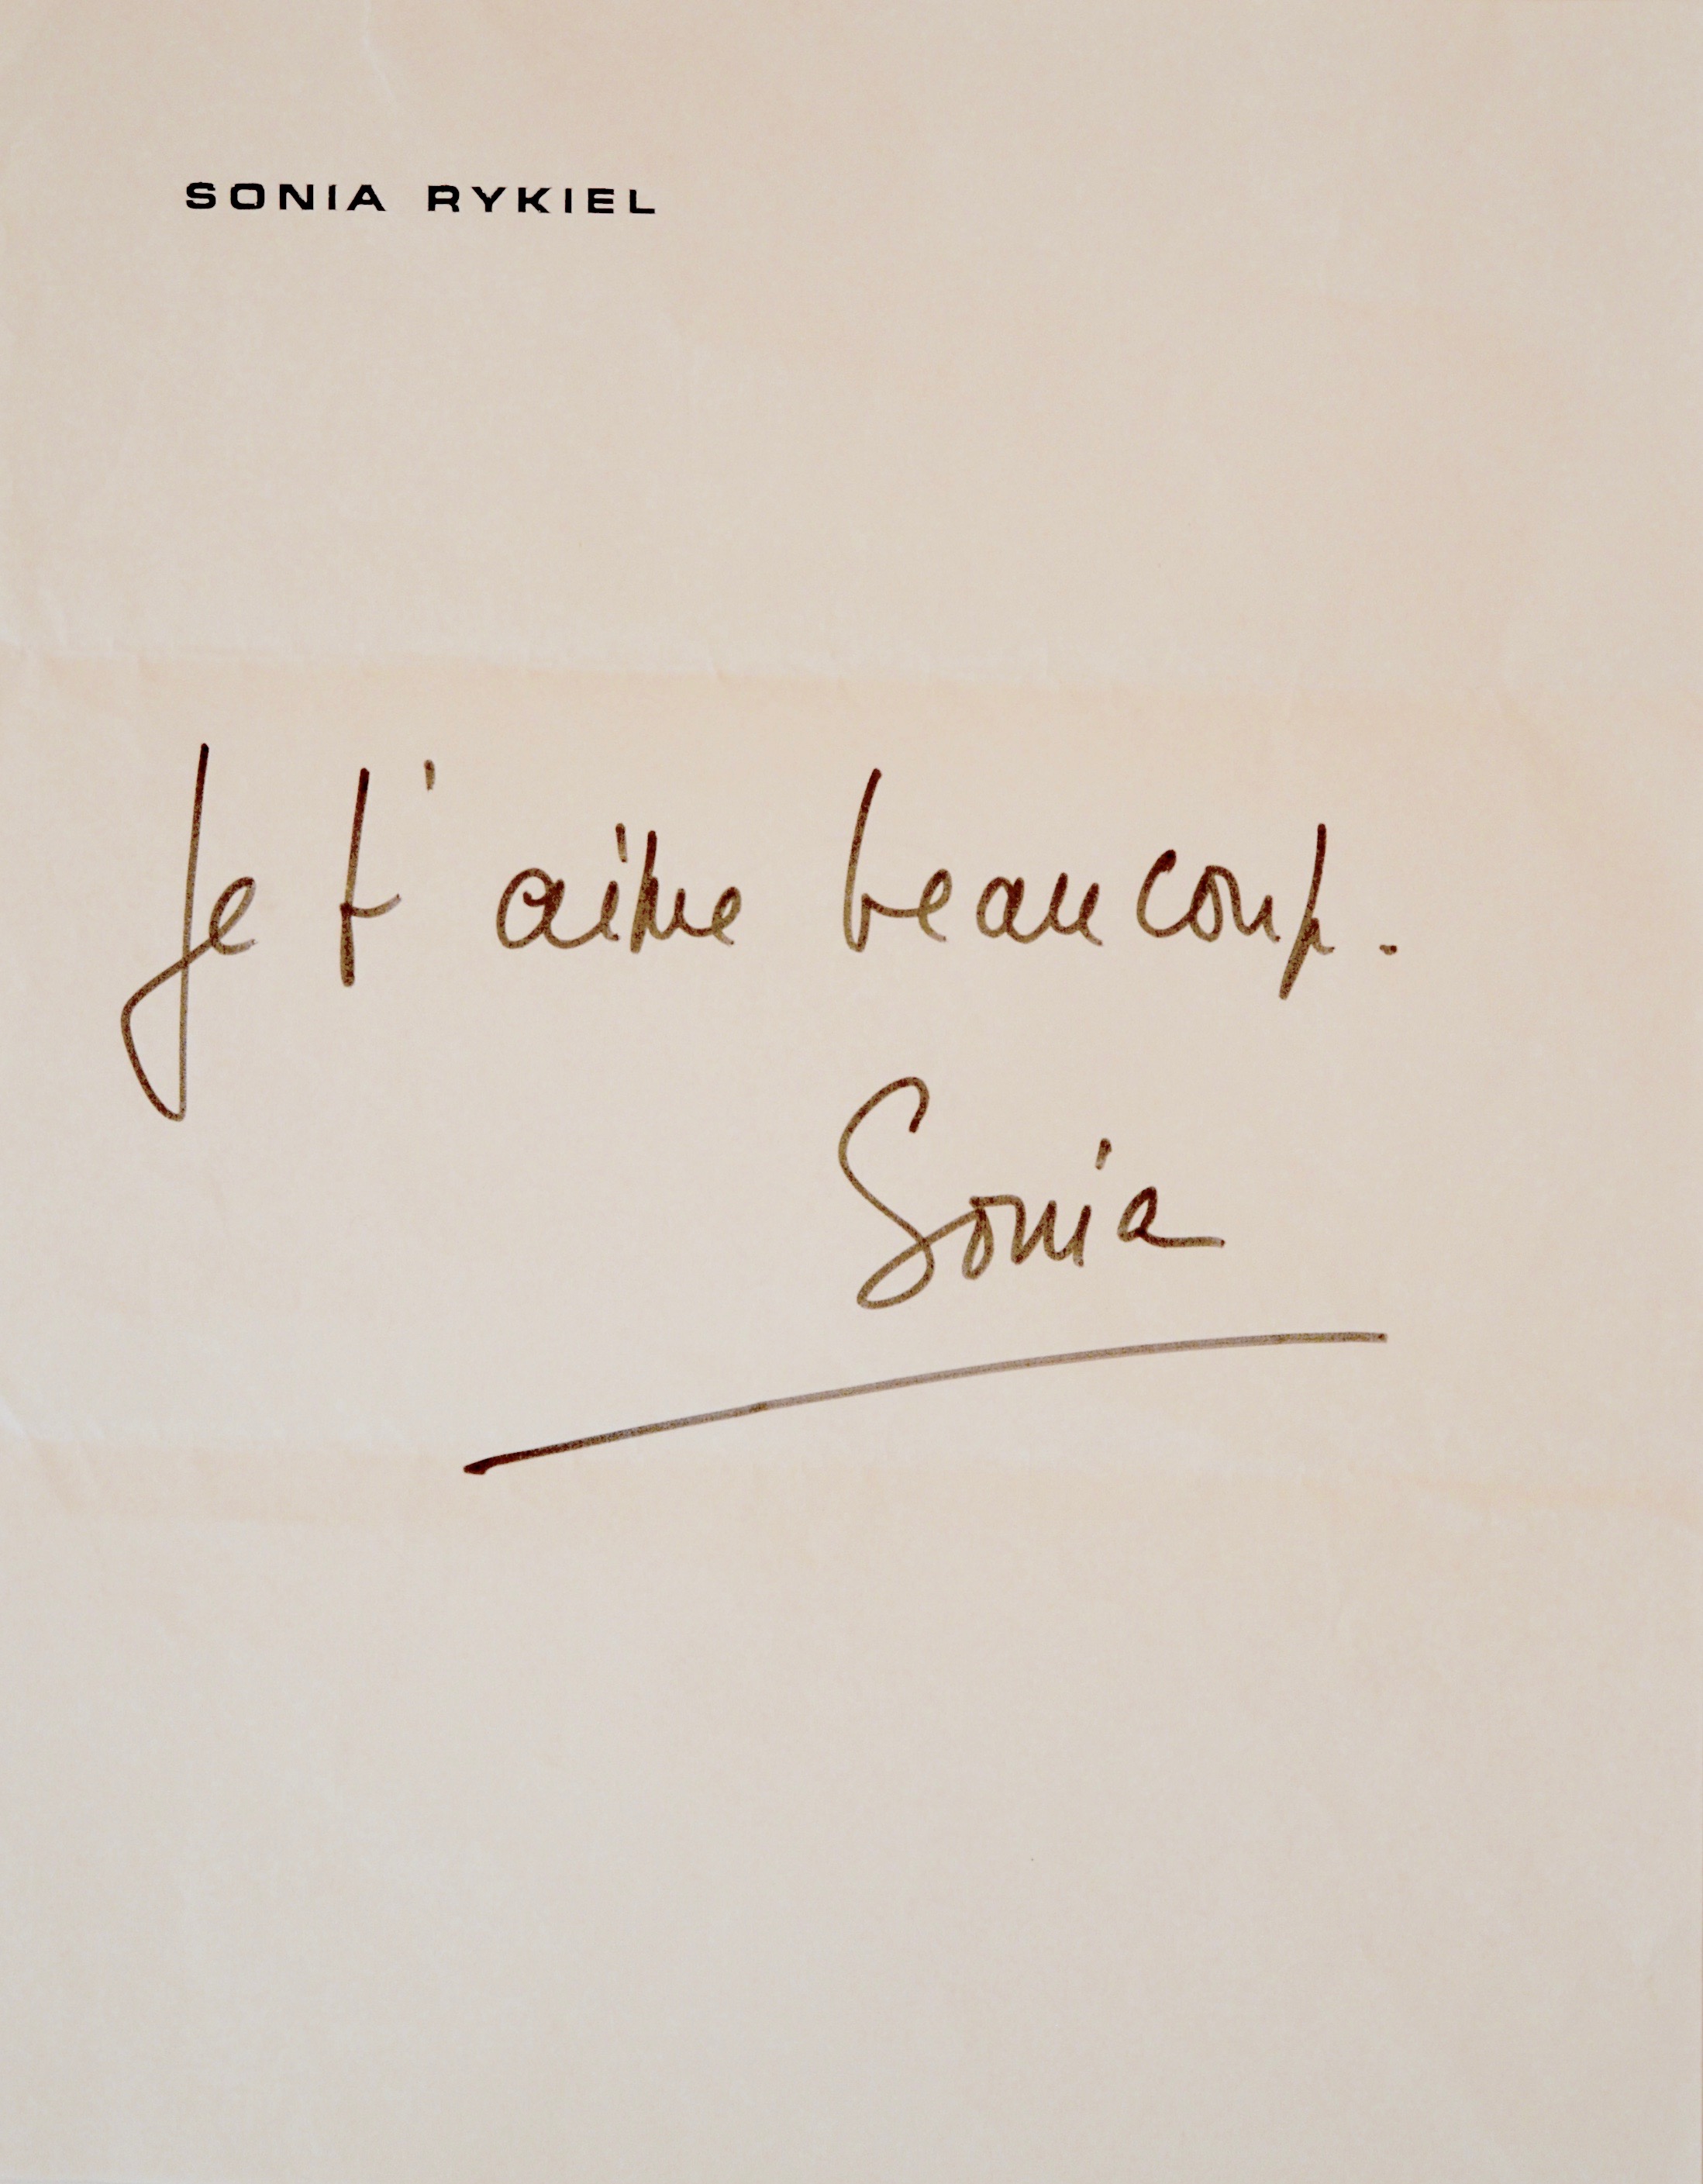 SONIA RYKIEL
Je t'aime beaucoup.
Sonia